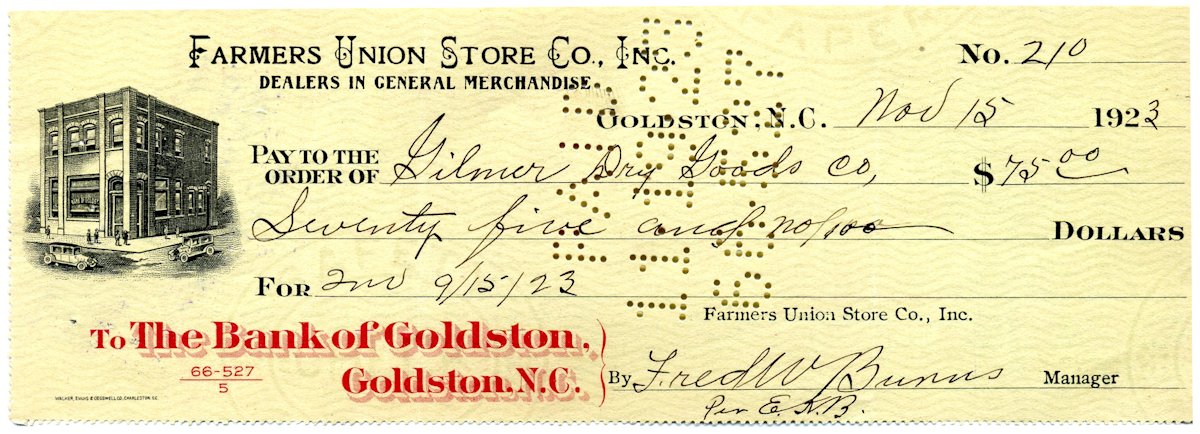 FARMERS UNION STORE CO., INC.
No. 210
DEALERS IN GENERAL MERCHANDISE
GOLDSTON, N.C. Nov 15 1923
PAY TO THE ORDER OF Gilmer Dry Goods Co, $75.00
Seventy five and no/100 DOLLARS
FOR Inv 9/15/23
Farmers Union Store Co., Inc.
To The Bank of Goldston,
Goldston, N.C.
66-527
5
By Fred W Burns Manager
Per E.K.B.
WALKER, EVANS & COGSWELL CO., CHARLESTON, S.C.